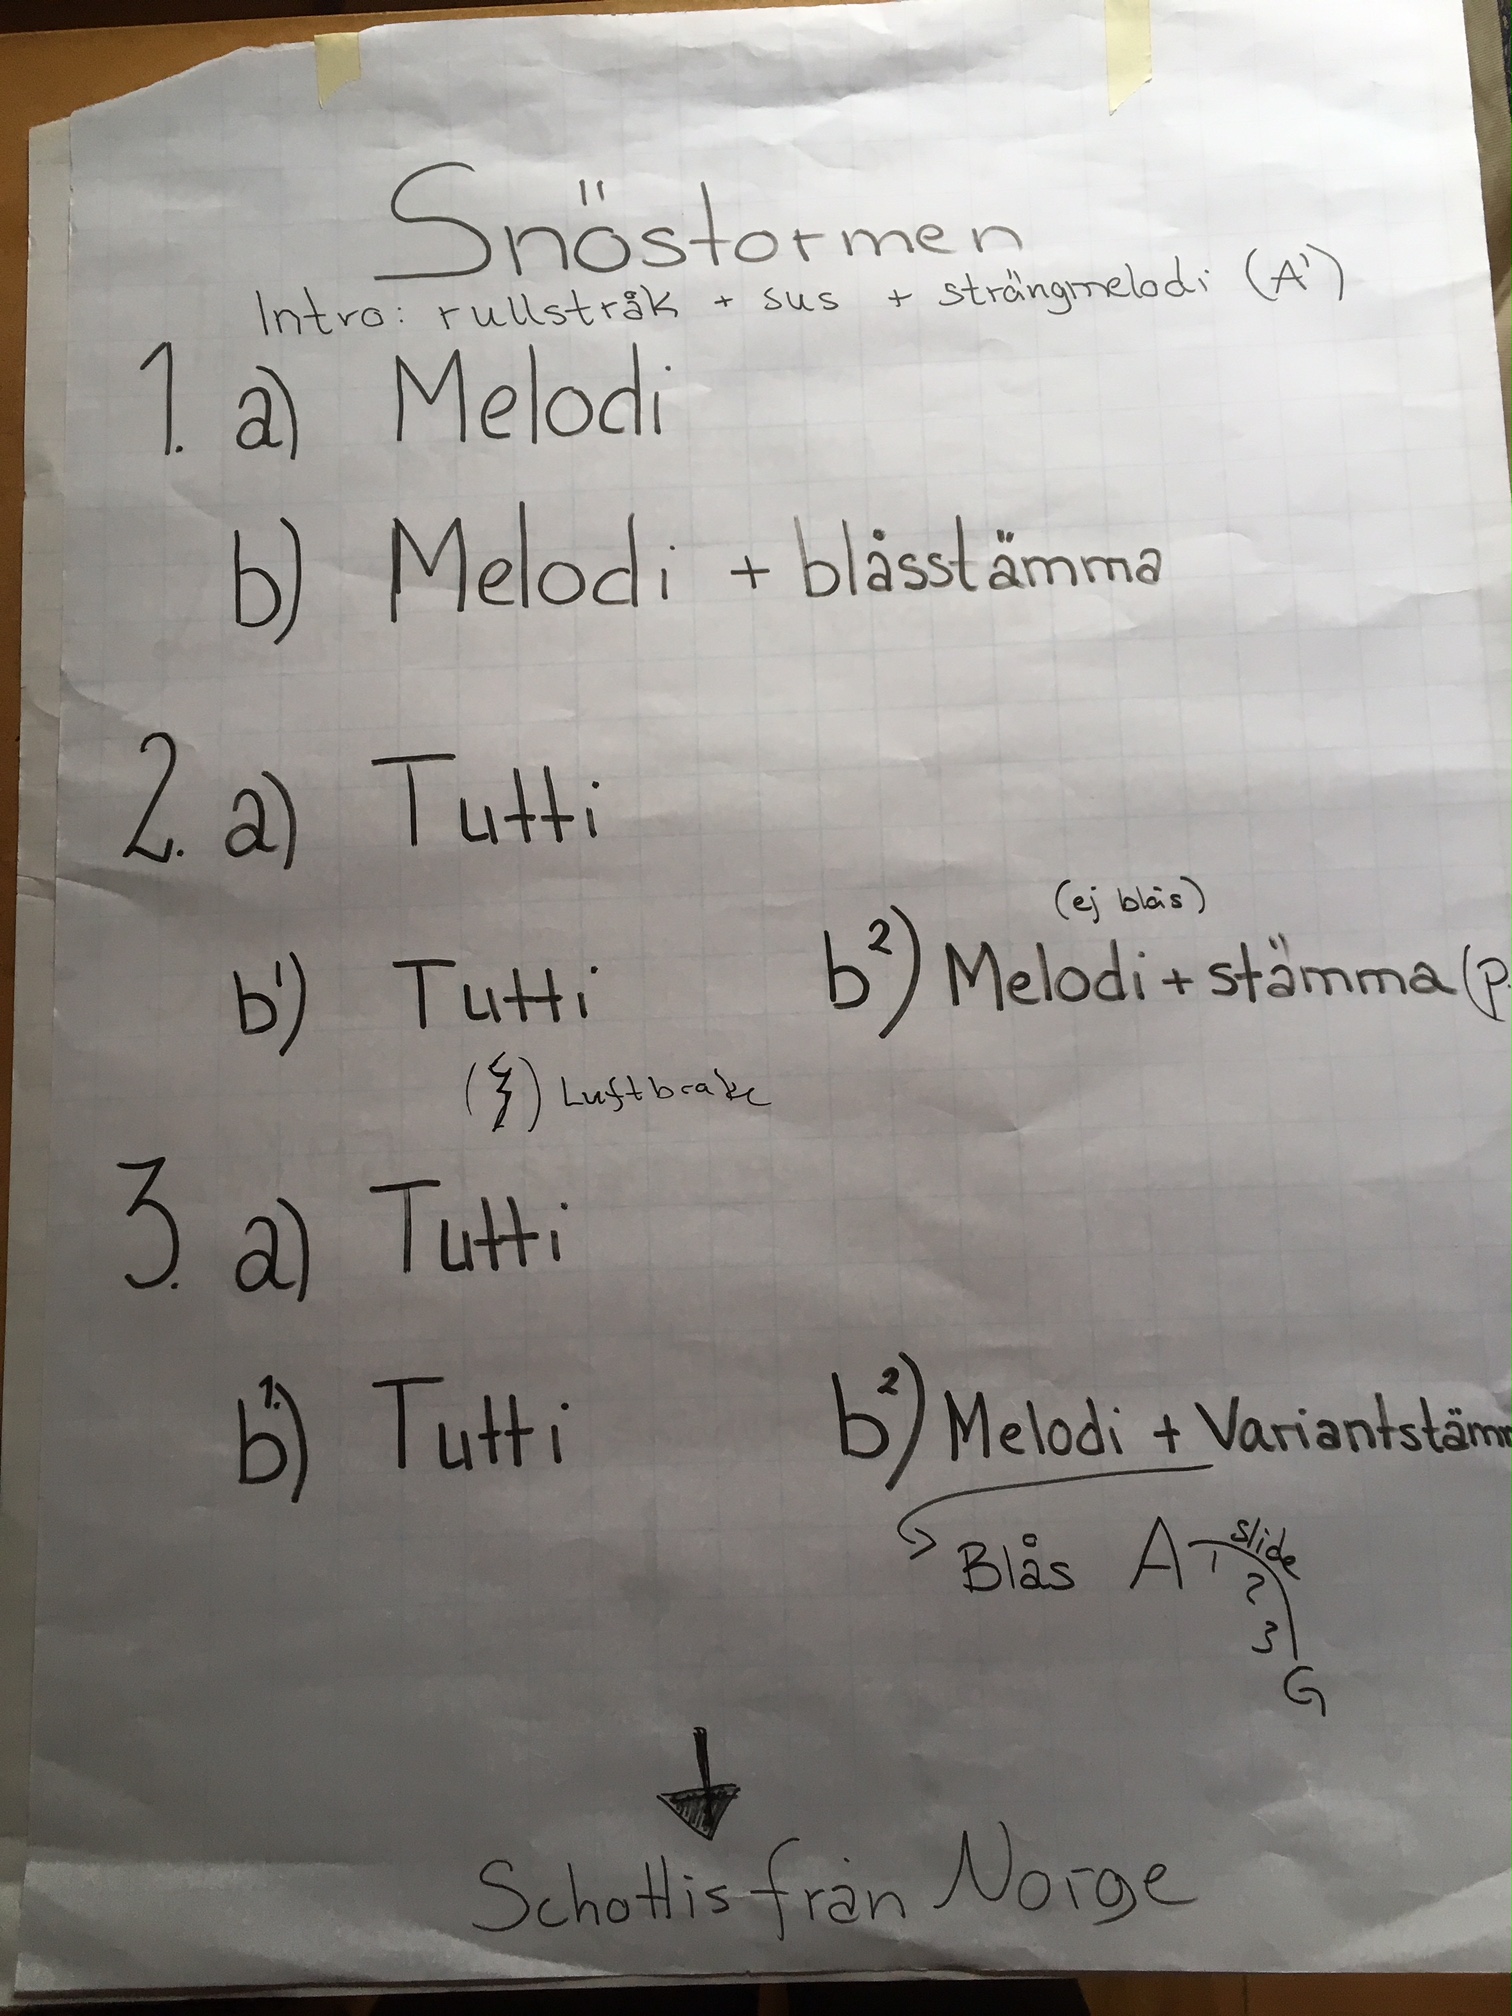 Snöstormen
Intro: rullstråk + sus + strängmelodi (A')
1. a) Melodi
b) Melodi + blåsstämma
2. a) Tutti
(ej blås)
b¹) Tutti b²) Melodi + stämma (p.
Luftbrake
3. a) Tutti
b¹) Tutti b²) Melodi + Variantstäm
Blås A slide
1
2
3
G
Schottis från Norge